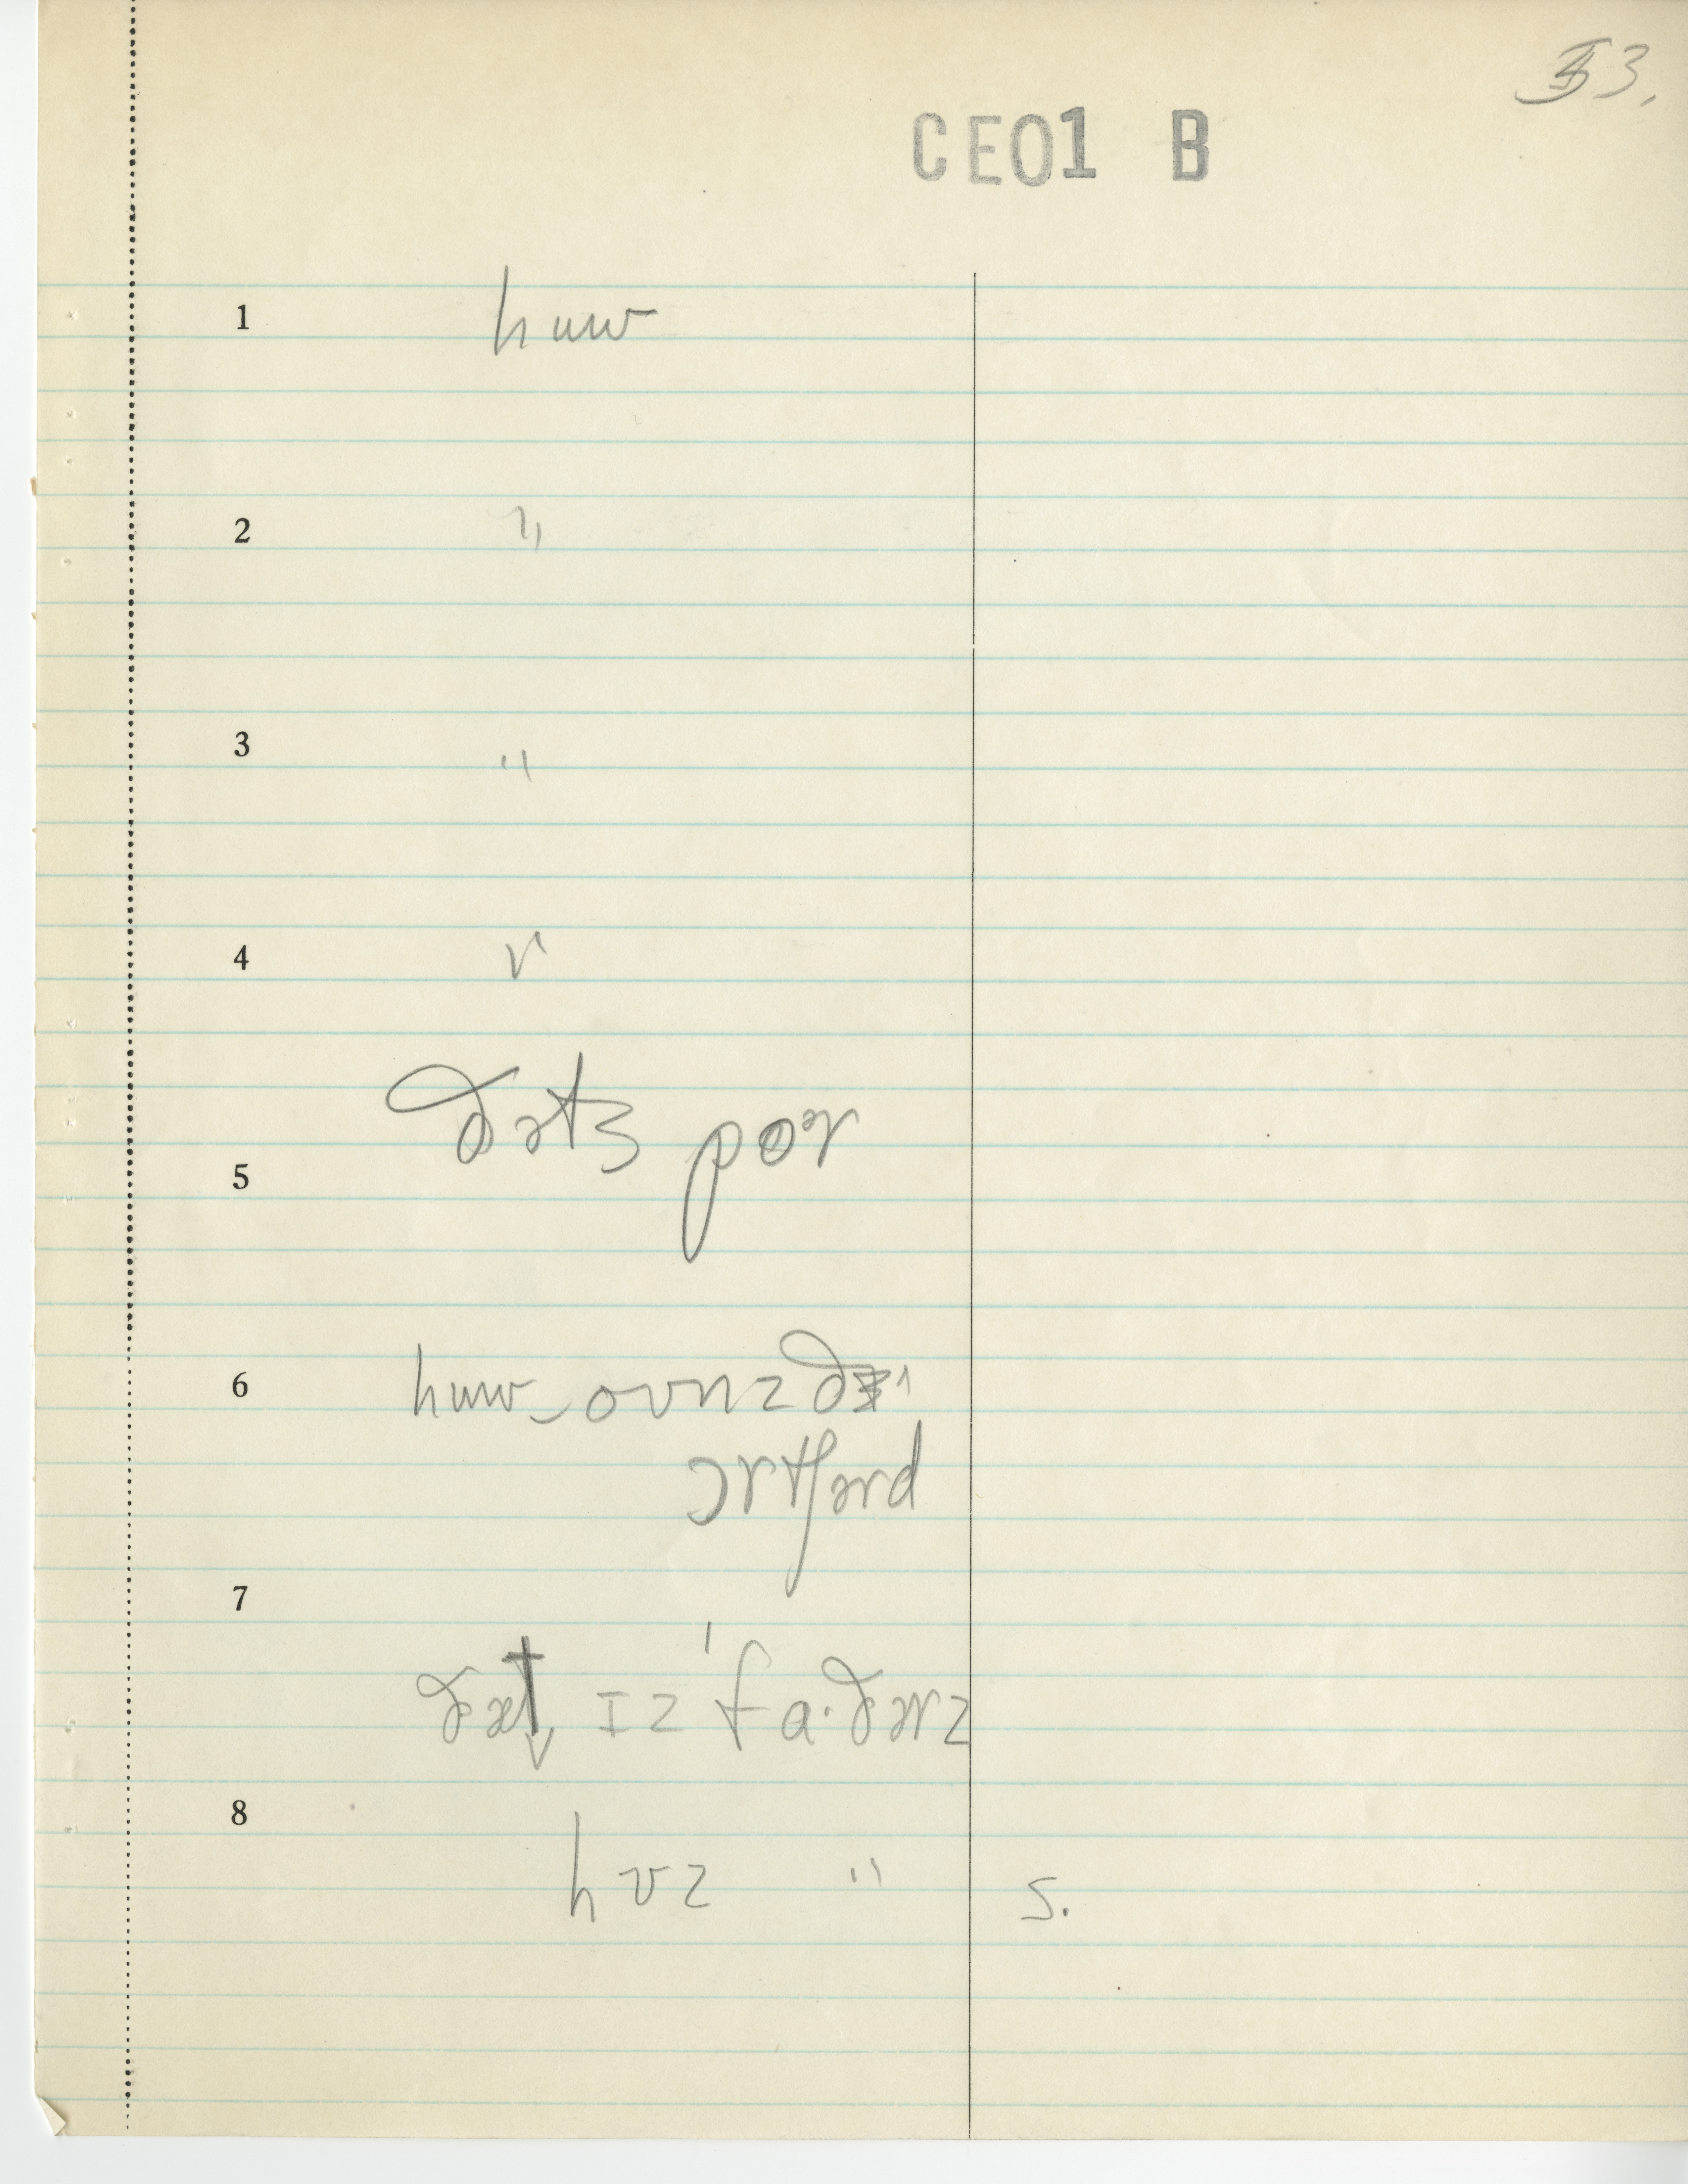 53.
CE01 B
1 huw
2 "
3 "
4 v
ðətz poɚ
5
6 huw‿ovnz ðɪ
ɔrtʃərd
7
ðæt ɪz ˈfa·ðərz
8
hʊz " s.